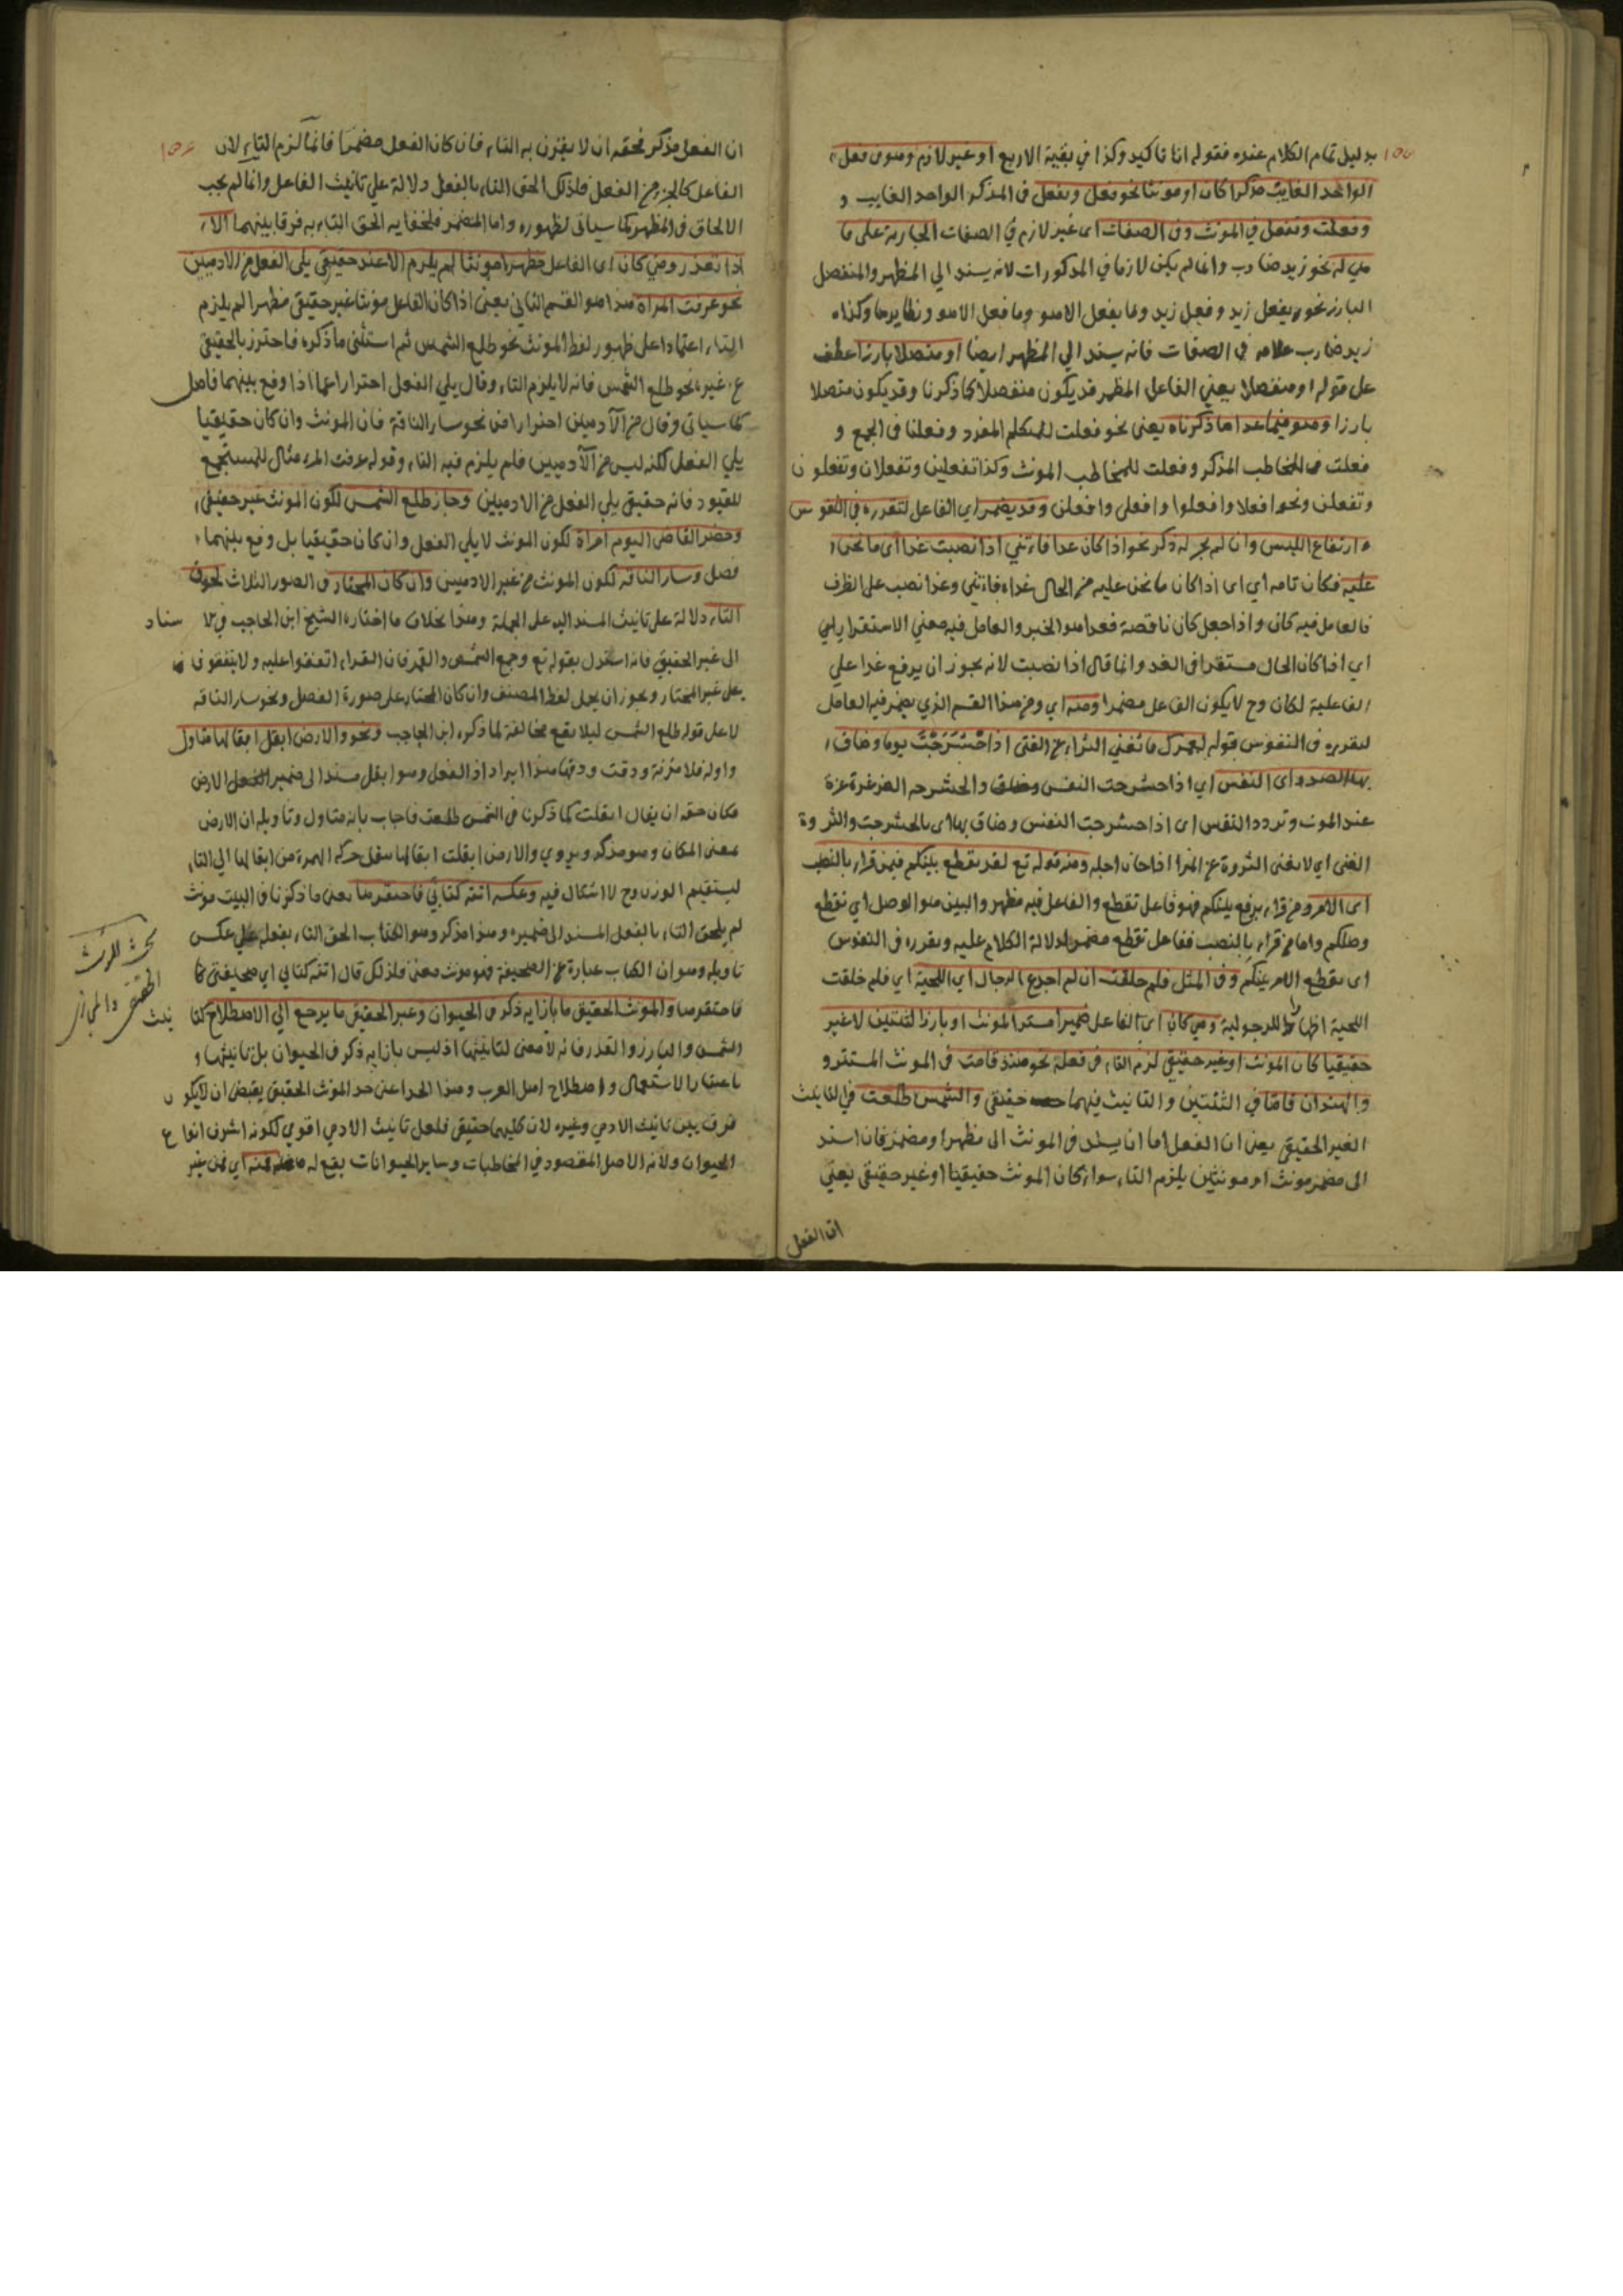 ١٥٥
بدليل تمام الكلام عنده فقوله انا تاكيد وكذا في بقية الاربع او غير لازم وهو في فعل
الواحد الغايب مذكرا كان او مونثا نحو فعل ويفعل في المذكر الواحد الغايب و
وفعلت وتفعل في المونث وفي الصفات اى غير لازم في الصفات الجارية على ما
هي له نحو زيد ضارب وانما لم يكن لازما في المذكورات لانه يسند الي المظهر والمنفصل
البارز نحو يفعل زيد وفعل زيد وما يفعل الا هو وما فعل الا هو ونظايرها وكذا
زيد ضارب غلامه في الصفات فانه يسند الي المظهر ايضا او متصلا بارزا عطف
على قوله او منفصلا يعني الفاعل المظهر قد يكون منفصلا كما ذكرنا وقد يكون متصلا
بارزا وهو فيما عدا ما ذكرناه يعنى نحو فعلت للمتكلم المفرد وفعلنا في الجمع و
فعلت في المخاطب المذكر وفعلت للمخاطب المونث وكذا تفعلين وتفعلان وتفعلون
وتفعلن ونحو افعلا وافعلوا وافعلى وافعلن وقد يضمر اي الفاعل لتقرره في النفوس
وارتفاع اللبس وان لم يجر له ذكر نحو اذا كان غدا فاءتني اذا نصبت غدا اى ما نحن
عليه فكان تامه اي اى اذا كان ما نحن عليه من الحال غدا فاءتنى وغدا نصب على الظرف
فالعامل فيه كان واذا جعل كان ناقصة فغدا هو الخبر والعامل فيه معني الاستقرار
اي اذا كان الحال مستقرا في الغد وانما قال اذا نصبت لانه يجوز ان يرفع غدا علي
الفاعلية لكان وح لا يكون الفاعل مضمرا ومنه اي ومن هذا القسم الذي يضمر فيه العامل
لتقرره في النفوس قوله لعمرك ما تغني الثراء عن الفتى اذا حشرجت يوما وضاق
بها الصدر اى النفس اي اذا حشرجت النفس وضاق والحشرجه الغرغرة عزة
عند الموت وتردد النفس اى اذا حشرجت النفس وضاق بها اى بالحشرجت والثروة
الغنى اي لا يغنى الثروة عن المرا اذا حان اجله ومنه قوله تع لقد تقطع بينكم فيمن قراء بالنصب
اى الامر ومن قراء برفع بينكم فهو فاعل تقطع والفاعل فيه مظهر والبين هو الوصل اي تقطع
وصلكم واما من قراء بالنصب ففاعل تقطع مضمر لدلالة الكلام عليه وتقرره في النفوس
اى تقطع الامر بينكم وفى المثل فلم خلقت ان لم اجدع الرجال اي اللحية اي فلم خلقت
اللحية اظهارا للرجولية ومتى كان اى الفاعل ضميرا مستتر المونث او بارزا لثنتين لا غير
حقيقيا كان المونث او غير حقيقي لزم التاء في فعله نحو هند قامت في المونث المستتر و
والهندان قامتا في الثنتين والتانيث فيهما حقيقى والشمس طلعت في التانيث
الغير الحقيقي يعنى ان الفعل اما ان يسند في المونث الى مظهر او مضمر فان اسند
الى مضمر مونث او مونثين يلزم التاء سواء كان المونث حقيقيا او غير حقيقى يعني
ان الفعل
١٥٦
ان الفعل مذكر فحقه ان لا يقترن به التاء فان كان الفعل مضمرا فانما لزم التاء لان
الفاعل كالجزء من الفعل فلذلك الحق التاء بالفعل دلالة علي تانيث الفاعل وانما لم يجب
الالحاق في المظهر كما سياتى لظهوره واما المضمر فلخفايه الحق التاء به فرقا بينهما الا
اذا تعذر ومتى كان اى الفاعل مظهرا مونثا لم يلزم الا عند حقيقي يلي الفعل من الادميين
نحو عرفت المراة هذا هو القسم الثاني يعنى اذا كان الفاعل مؤنثا غير حقيقى مظهرا لم يلزم
التاء اعتمادا على ظهور لفظ المونث نحو طلع الشمس ثم استثنى ما ذكره فاحترز بالحقيقى
ع غيره نحو طلع الشمس فانه لا يلزم التاء وقال يلي الفعل احترازا عما اذا وقع بينهما فاصل
كما سياتى وقال من الآدميين احترازا من نحو سار الناقة فان المونث وان كان حقيقيا
يلي الفعل لكنه ليس من الآدميين فلم يلزم فيه التاء وقوله عرفت المرءة مثال للمستجمع
للقيود فانه حقيقى يلي الفعل من الادميين وجاز طلع الشمس لكون المونث غير حقيقى
وحضر القاضى اليوم امراة لكون المونث لا يلي الفعل وان كان حقيقيا بل وقع بينهما
فصل وسار الناقة لكون المونث من غير الادميين وان كان المختار في الصور الثلاث لحوق
التاء دلالة على تانيث المسند اليه على الجملة وهذا بخلاف ما اختاره الشيخ ابن الحاجب في الاسناد
الى غير الحقيقي فانه استدل بقوله تع وجمع الشمس والقمر فان القراء اتفقوا عليه ولا يتفقون
على غير المختار ويجوز ان يحمل لفظ المصنف وان كان المختار على صورة الفصل ونحو سار الناقه
لا على قوله طلع الشمس ليلا يقع مخالفة لما ذكره ابن الحاجب ونحو والارض ابقل ابقالها متاول
واوله فلا مزنة ودقت ودقها هذا ايراد اذ الفعل وهو ابقل مسند الى ضمير الارض
فكان حقه ان يقال ابقلت كما ذكرنا في الشمس طلعت فاجاب بانه متاول وتاويله ان الارض
بمعنى المكان وهو مذكر ويروي والارض ابقلت ابقالها بنقل حركه الهمزة من ابقالها الى التاء
ليستقيم الوزن وح لا اشكال فيه وعكسه اتته كتابي فاحتقرها يعنى ما ذكرنا في البيت مونث
لم يلحق التاء بالفعل المسند الى ضميره وهذا مذكر وهو الكتاب الحق التاء بفعله علي عكس
تاويله وهو ان الكتاب عبارة عن الصحيفة فهو مونث معنى فلذلك قال اتته كتابي اي صحيفتى
فاحتقرها والمونث الحقيقي ما بازايه ذكر في الحيوان وغير الحقيقي ما يرجع الي الاصطلاح كتا نيث
الشمس والنار والقدر فانه لا معنى لتانيثها اذ ليس بازايه ذكر في الحيوان بل تانيثها و
باعتبار الاستعمال واصطلاح اهل العرب وهذا الحد اعنى حد المونث الحقيقي يقتضى ان لا يكون
فرق بين تانيث الادمي وغيره لان كليهما حقيقي فلعل تانيث الادمي اقوي لكونه اشرف انواع
الحيوان ولانه الاصل المقصود في المخاطبات وساير الحيوانات يقع له اي من غير
بحث المونث
الحقيقى والمجازى